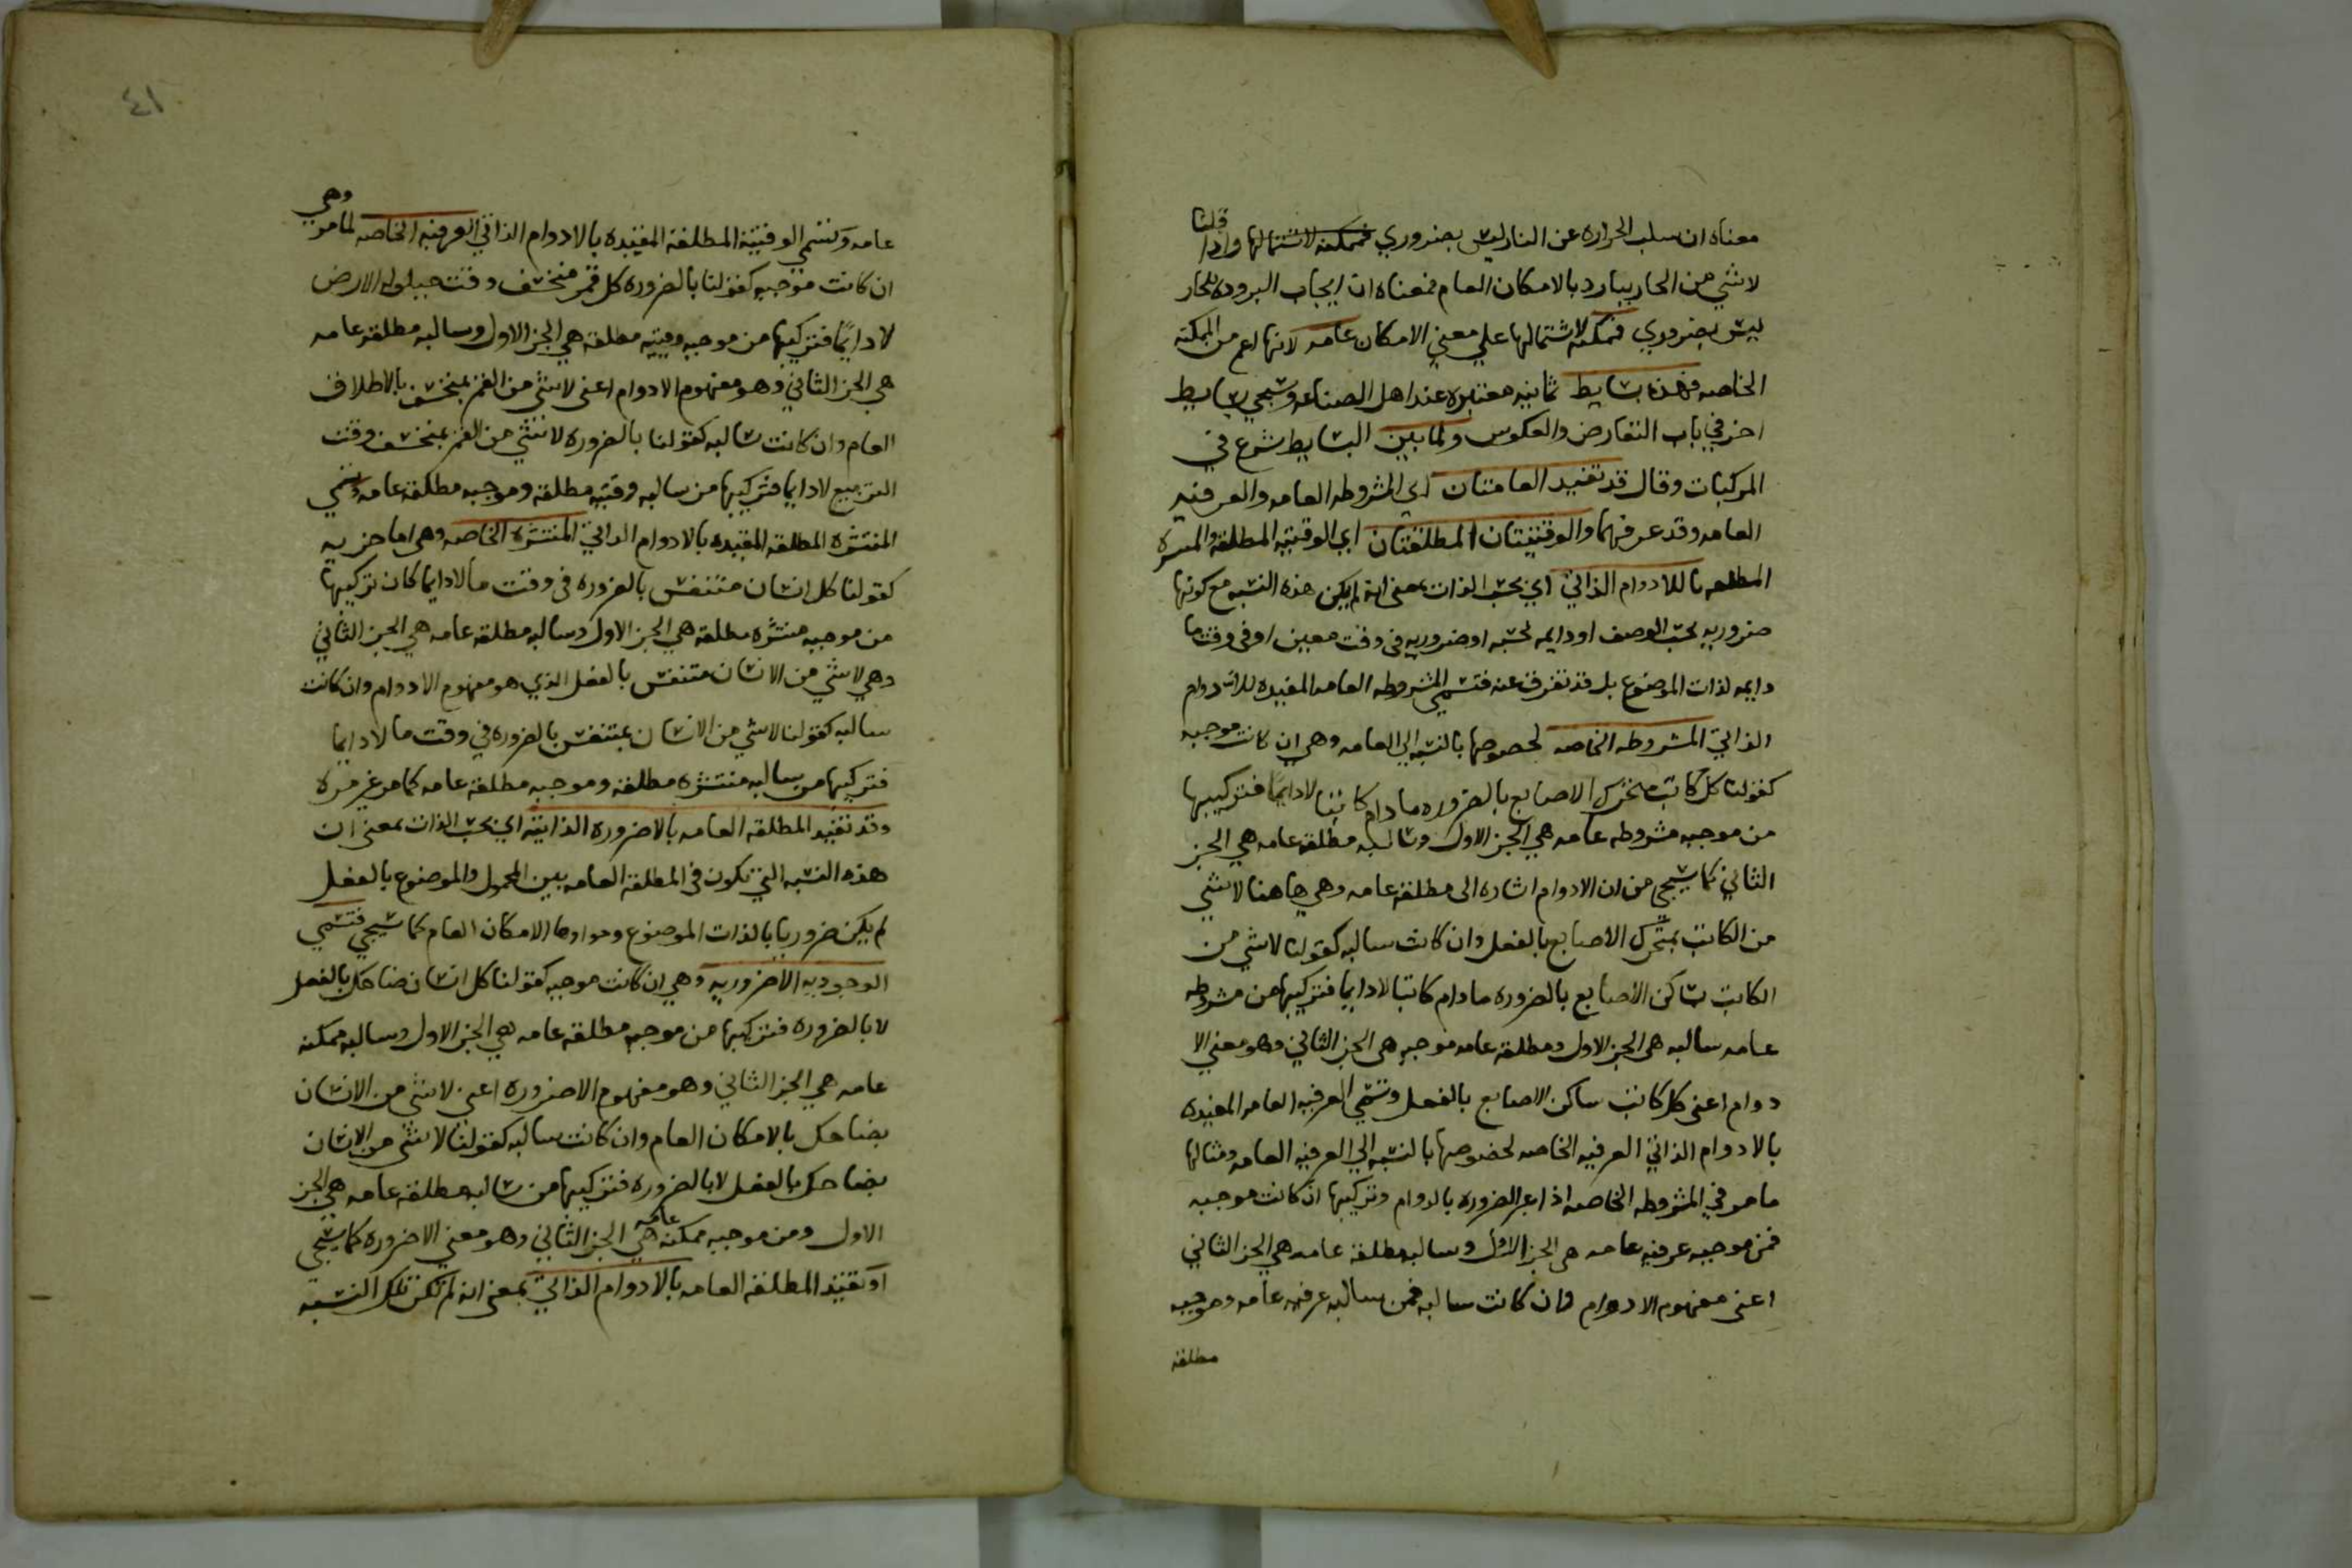 معناه ان سلب الحراره عن النار ليس بضروري فممكنه لاشتمالها واذا قلنا
لا شي من الحار ببارد بالامكان العام فمعناه ان ايجاب البروده للحار
ليس بضروري فممكنه لاشتمالها علي معني الامكان عامه لانها اعم من الممكنه
الخاصه فهذه بسايط ثمانيه معتبره عند اهل الصناعه وسيجي بسايط
اخر في باب التناقض والعكوس ولما بين البسايط شرع في
المركبات وقال قد تقيد العامتان اي المشروطه العامه والعرفيه
العامه وقد عرفهما والوقتيتان المطلقتان اي الوقتيه المطلقه والمنتشره
المطلقه باللادوام الذاتي اي بحسب الذات بمعنى انه لم يكن هذه النسبه مع كونها
ضروريه بحسب الوصف او دايمه بحسبه او ضروريه في وقت معين او في وقت ما
دايمه لذات الموضوع بل قد تفرق عنه فتسمي المشروطه العامه المقيده للادوام
الذاتي المشروطه الخاصه لخصوصها بالنسبه الي العامه وهي ان كانت موجبه
كقولنا كل كاتب متحرك الاصابع بالضروره مادام كاتبا لا دايما فتركيبها
من موجبه مشروطه عامه هي الجز الاول وسالبه مطلقه عامه هي الجز
الثاني كما سيجي من ان الادوام اشاره الى مطلقه عامه وهي هاهنا لا شي
من الكاتب بمتحرك الاصابع بالفعل وان كانت سالبه كقولنا لا شي من
الكاتب ساكن الاصابع بالضروره مادام كاتبا لا دايما فتركيبها من مشروطه
عامه سالبه هي الجز الاول ومطلقه عامه موجبه هي الجز الثاني وهو معني الا
دوام اعنى كل كاتب ساكن الاصابع بالفعل وتسمي العرفيه العامه المقيده
بالادوام الذاتي العرفيه الخاصه لخصوصها بالنسبه الي العرفيه العامه ومثالها
ما مر في المشروطه الخاصه اذا عبر الضروره بالدوام وتركيبها ان كانت موجبه
فمن موجبه عرفيه عامه هي الجز الاول وسالبه مطلقه عامه هي الجز الثاني
اعنى مفهوم الادوام وان كانت سالبه فمن سالبه عرفيه عامه وموجبه
مطلقه
٤١
عامه وتسمي الوقتيه المطلقه المقيده بالادوام الذاتي العرفيه الخاصه لما مر وهي
ان كانت موجبه كقولنا بالضروره كل قمر منخسف وقت حيلوله الارض
لا دايما فتركيبها من موجبه وقتيه مطلقه هي الجز الاول وسالبه مطلقه عامه
هي الجز الثاني وهو مفهوم الادوام اعنى لا شي من القمر بمنخسف بالاطلاق
العام وان كانت سالبه كقولنا بالضروره لا شي من القمر بمنخسف وقت
التربيع لا دايما فتركيبها من سالبه وقتيه مطلقه وموجبه مطلقه عامه وتسمي
المنتشره المطلقه المقيده بالادوام الذاتي المنتشره الخاصه وهي اما
كقولنا كل انسان متنفس بالضروره في وقت ما لا دايما كان تركيبها
من موجبه منتشره مطلقه هي الجز الاول وسالبه مطلقه عامه هي الجز الثاني
وهي لا شي من الانسان متنفس بالفعل الذي هو مفهوم الادوام وان كانت
سالبه كقولنا لا شي من الانسان بمتنفس بالضروره في وقت ما لا دايما
فتركيبها من سالبه منتشره مطلقه وموجبه مطلقه عامه كما مر غير مره
وقد تقيد المطلقه العامه بالاضروره الذاتيه اي بحسب الذات بمعنى ان
هذه النسبه التي تكون في المطلقه العامه بين المحمول والموضوع بالفعل
لم يكن ضروريا بالذات الموضوع الامكان العام كما سيجي فتسمي
الوجوديه الاضروريه وهي ان كانت موجبه كقولنا كل انسان ضاحك بالفعل
لا بالضروره فتركيبها من موجبه مطلقه عامه هي الجز الاول وسالبه ممكنه
عامه هي الجز الثاني وهو مفهوم الاضروره اعني لا شي من الانسان
بضاحك بالامكان العام وان كانت سالبه كقولنا لا شي من الانسان
بضاحك بالفعل لا بالضروره فتركيبها من سالبه مطلقه عامه هي الجز
الاول ومن موجبه ممكنه عامه هي الجز الثاني وهو معني الاضروره كما سيجي
او تقيد المطلقه العامه بالادوام الذاتي بمعنى انه لم تكن تلك النسبه